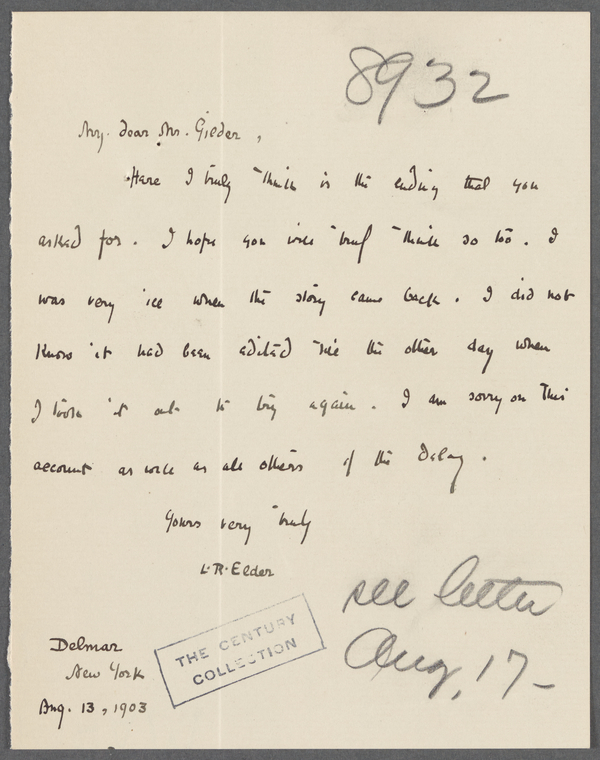 8932
My dear Mr. Gilder,
Here I truly think is the ending that you
asked for. I hope you will truly think so too. I
was very ill when the story came back. I did not
know it had been edited till the other day when
I took it out to try again. I am sorry on this
account as well as all others of the delay.
Yours very truly
L. R. Elder
Delmar
New York
Aug. 13, 1903
THE CENTURY
COLLECTION
see letter
Aug, 17-